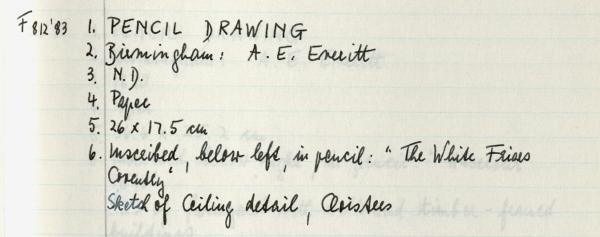 F812'83 1. PENCIL DRAWING
2. Birmingham: A. E. Everitt
3. N.D.
4. Paper
5. 26 x 17.5 cm
6. Inscribed, below left, in pencil: "The White Friars
Coventry"
Sketch of Ceiling detail, Cloisters